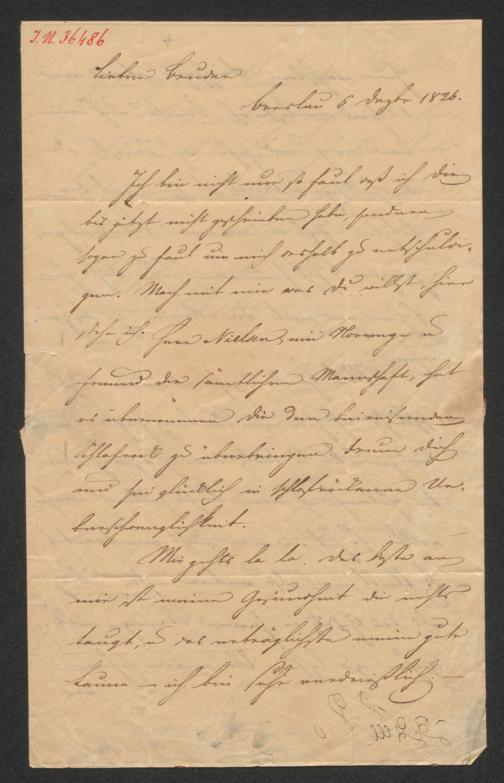 I.N. 36486
Lieber Bruder
Breslau 6 Dezbr 1826.
Ich bin nicht nur so faul daß ich Dir
bis jetzt nicht geschrieben habe, sondern
sogar zu faul um mich deshalb zu entschuldi-
gen. Mach mit mir was Du willst hier
steh ich. Herr Nielsen, ein Norweger u
Freund der sämtlichen Mannschaft, hat
es übernommen Dir den beireisenden
Schlafrock zu überbringen. Freue Dich
und sei glücklich in schlafröckener Ue-
berschwenglichkeit.
Mir gehts la la. Das beste an
mir ist meine Gesundheit die nichts
taugt, u das erträglichste meine gute
Laune – ich bin sehr verdrießlich. –